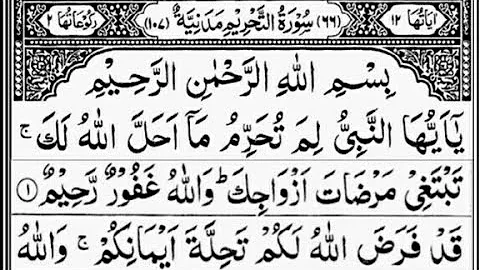 اٰيَاتُهَا ١٢ (٦٦) سُوْرَةُ التَّحْرِيْمِ مَدَنِيَّةٌ (١٠٧) رُكُوْعَاتُهَا ٢
بِسْمِ اللهِ الرَّحْمٰنِ الرَّحِيْمِ
يٰۤاَيُّهَا النَّبِيُّ لِمَ تُحَرِّمُ مَاۤ اَحَلَّ اللهُ لَكَ ۚ
تَبْتَغِيْ مَرْضَاتَ اَزْوَاجِكَ ؕ وَاللهُ غَفُوْرٌ رَّحِيْمٌ ۝١
قَدْ فَرَضَ اللهُ لَكُمْ تَحِلَّةَ اَيْمَانِكُمْ ۚ وَاللهُ